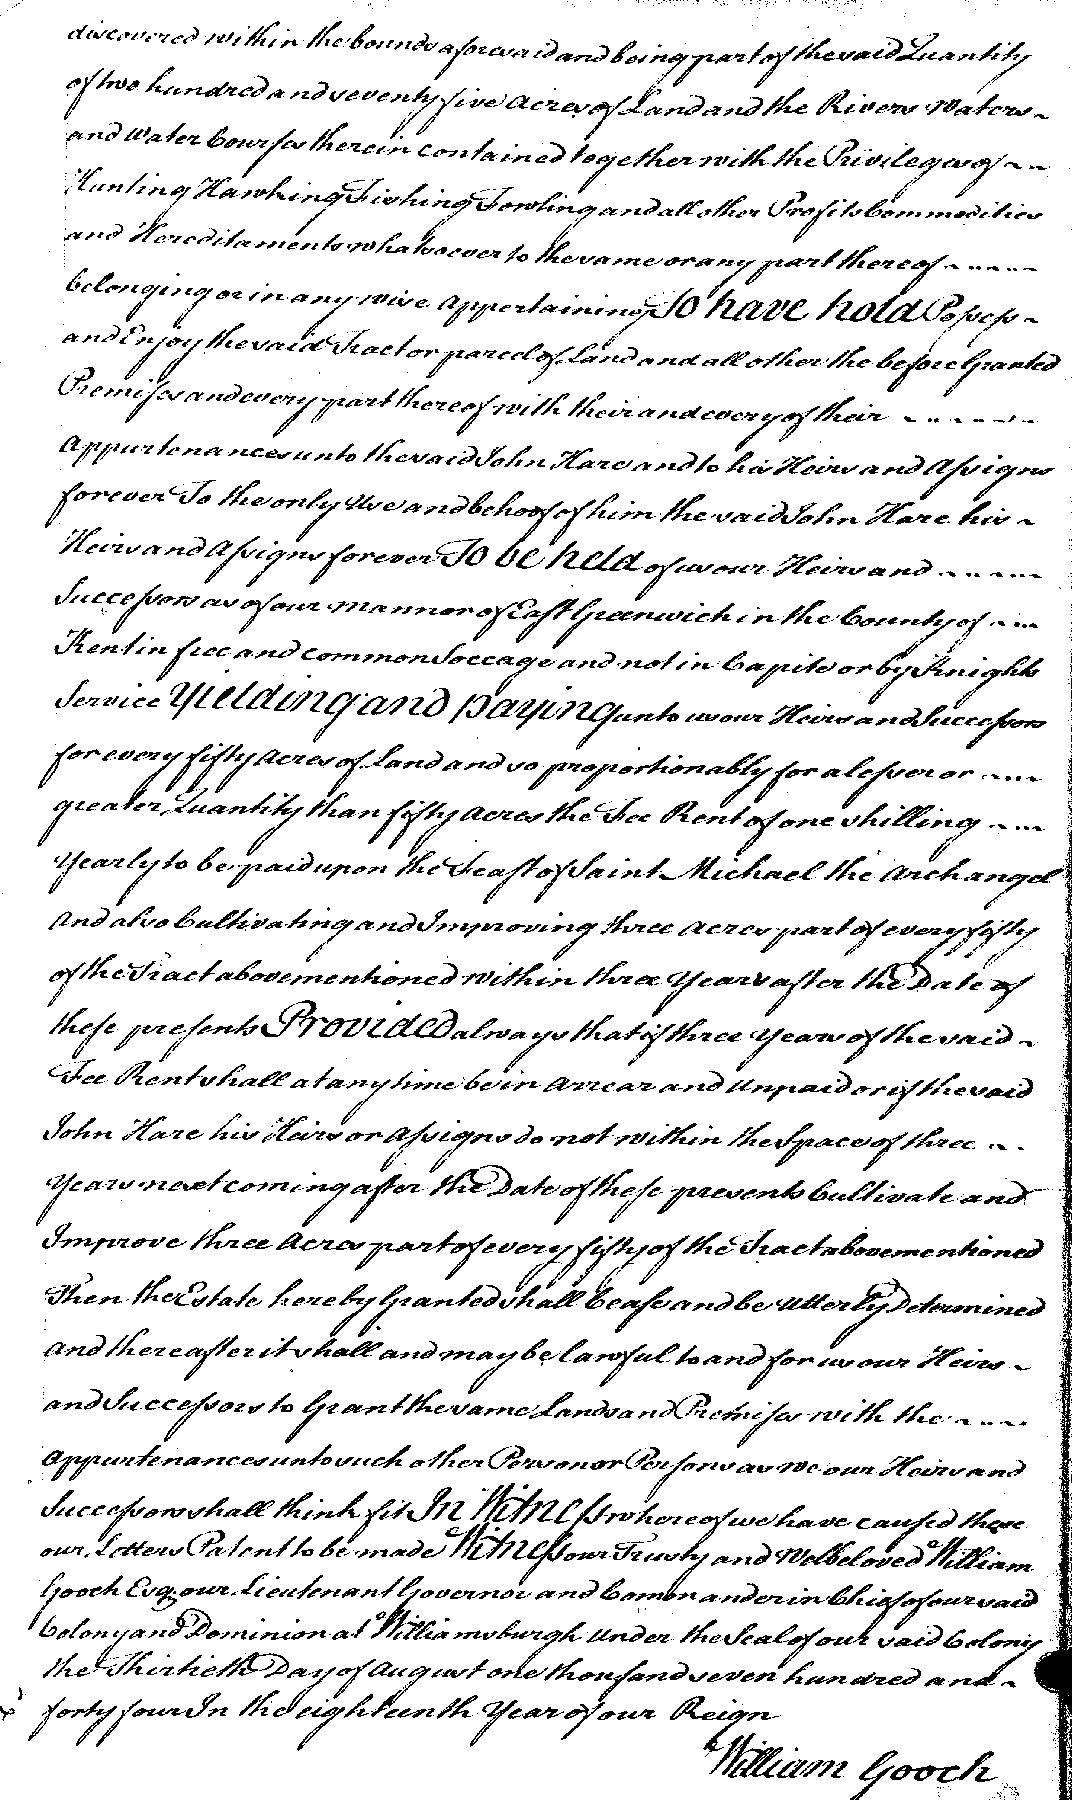 discovered within the bounds aforesaid and being part of the said Quantity
of two hundred and seventy five Acres of Land and the Rivers Waters
and Water Courses therein contained together with the Privileges of
Hunting Hawking Fishing Fowling and all other Profits Commodities
and Hereditaments whatsoever to the same or any part thereof
belonging or in any wise Appertaining To have hold Possess
and Enjoy the said Tract or parcel of Land and all other the before Granted
Premisses and every part thereof with their and every of their
Appurtenances unto the said John Hare and to his Heirs and Assigns
forever To the only Use and behoof of him the said John Hare his
Heirs and Assigns forever To be held of us our Heirs and
Successors as of our mannor of East Greenwich in the County of
Kent in free and common Soccage and not in Capite or by Knights
Service Yielding and paying unto us our Heirs and Successors
for every fifty Acres of Land and so proportionably for a lesser or
greater Quantity than fifty Acres the Fee Rent of one shilling
Yearly to be paid upon the Feast of Saint Michael the Archangel
And also Cultivating and Improving three Acres part of every fifty
of the Tract abovementioned within three Years after the Date of
these presents Provided always that if three Years of the said
Fee Rent shall at any time be in Arrear and Unpaid or if the said
John Hare his Heirs or Assigns do not within the Space of three
Years next coming after the Date of these presents Cultivate and
Improve three Acres part of every fifty of the Tract abovementioned
Then the Estate hereby Granted shall Cease and be Utterly Determined
And thereafter it shall and may be lawful to and for us our Heirs
and Successors to Grant the same Lands and Premisses with the
Appurtenances unto such other Person or Persons as we our Heirs and
Successors shall think fit In Witness whereof we have caused these
our Letters Patent to be made Witness our Trusty and Welbeloved William
Gooch Esqr. our Lieutenant Governor and Comander in Chief of our said
Colony and Dominion at Williamsburgh Under the Seal of our said Colony
the Thirtieth Day of August one thousand seven hundred and
forty four In the eighteenth Year of our Reign
William Gooch